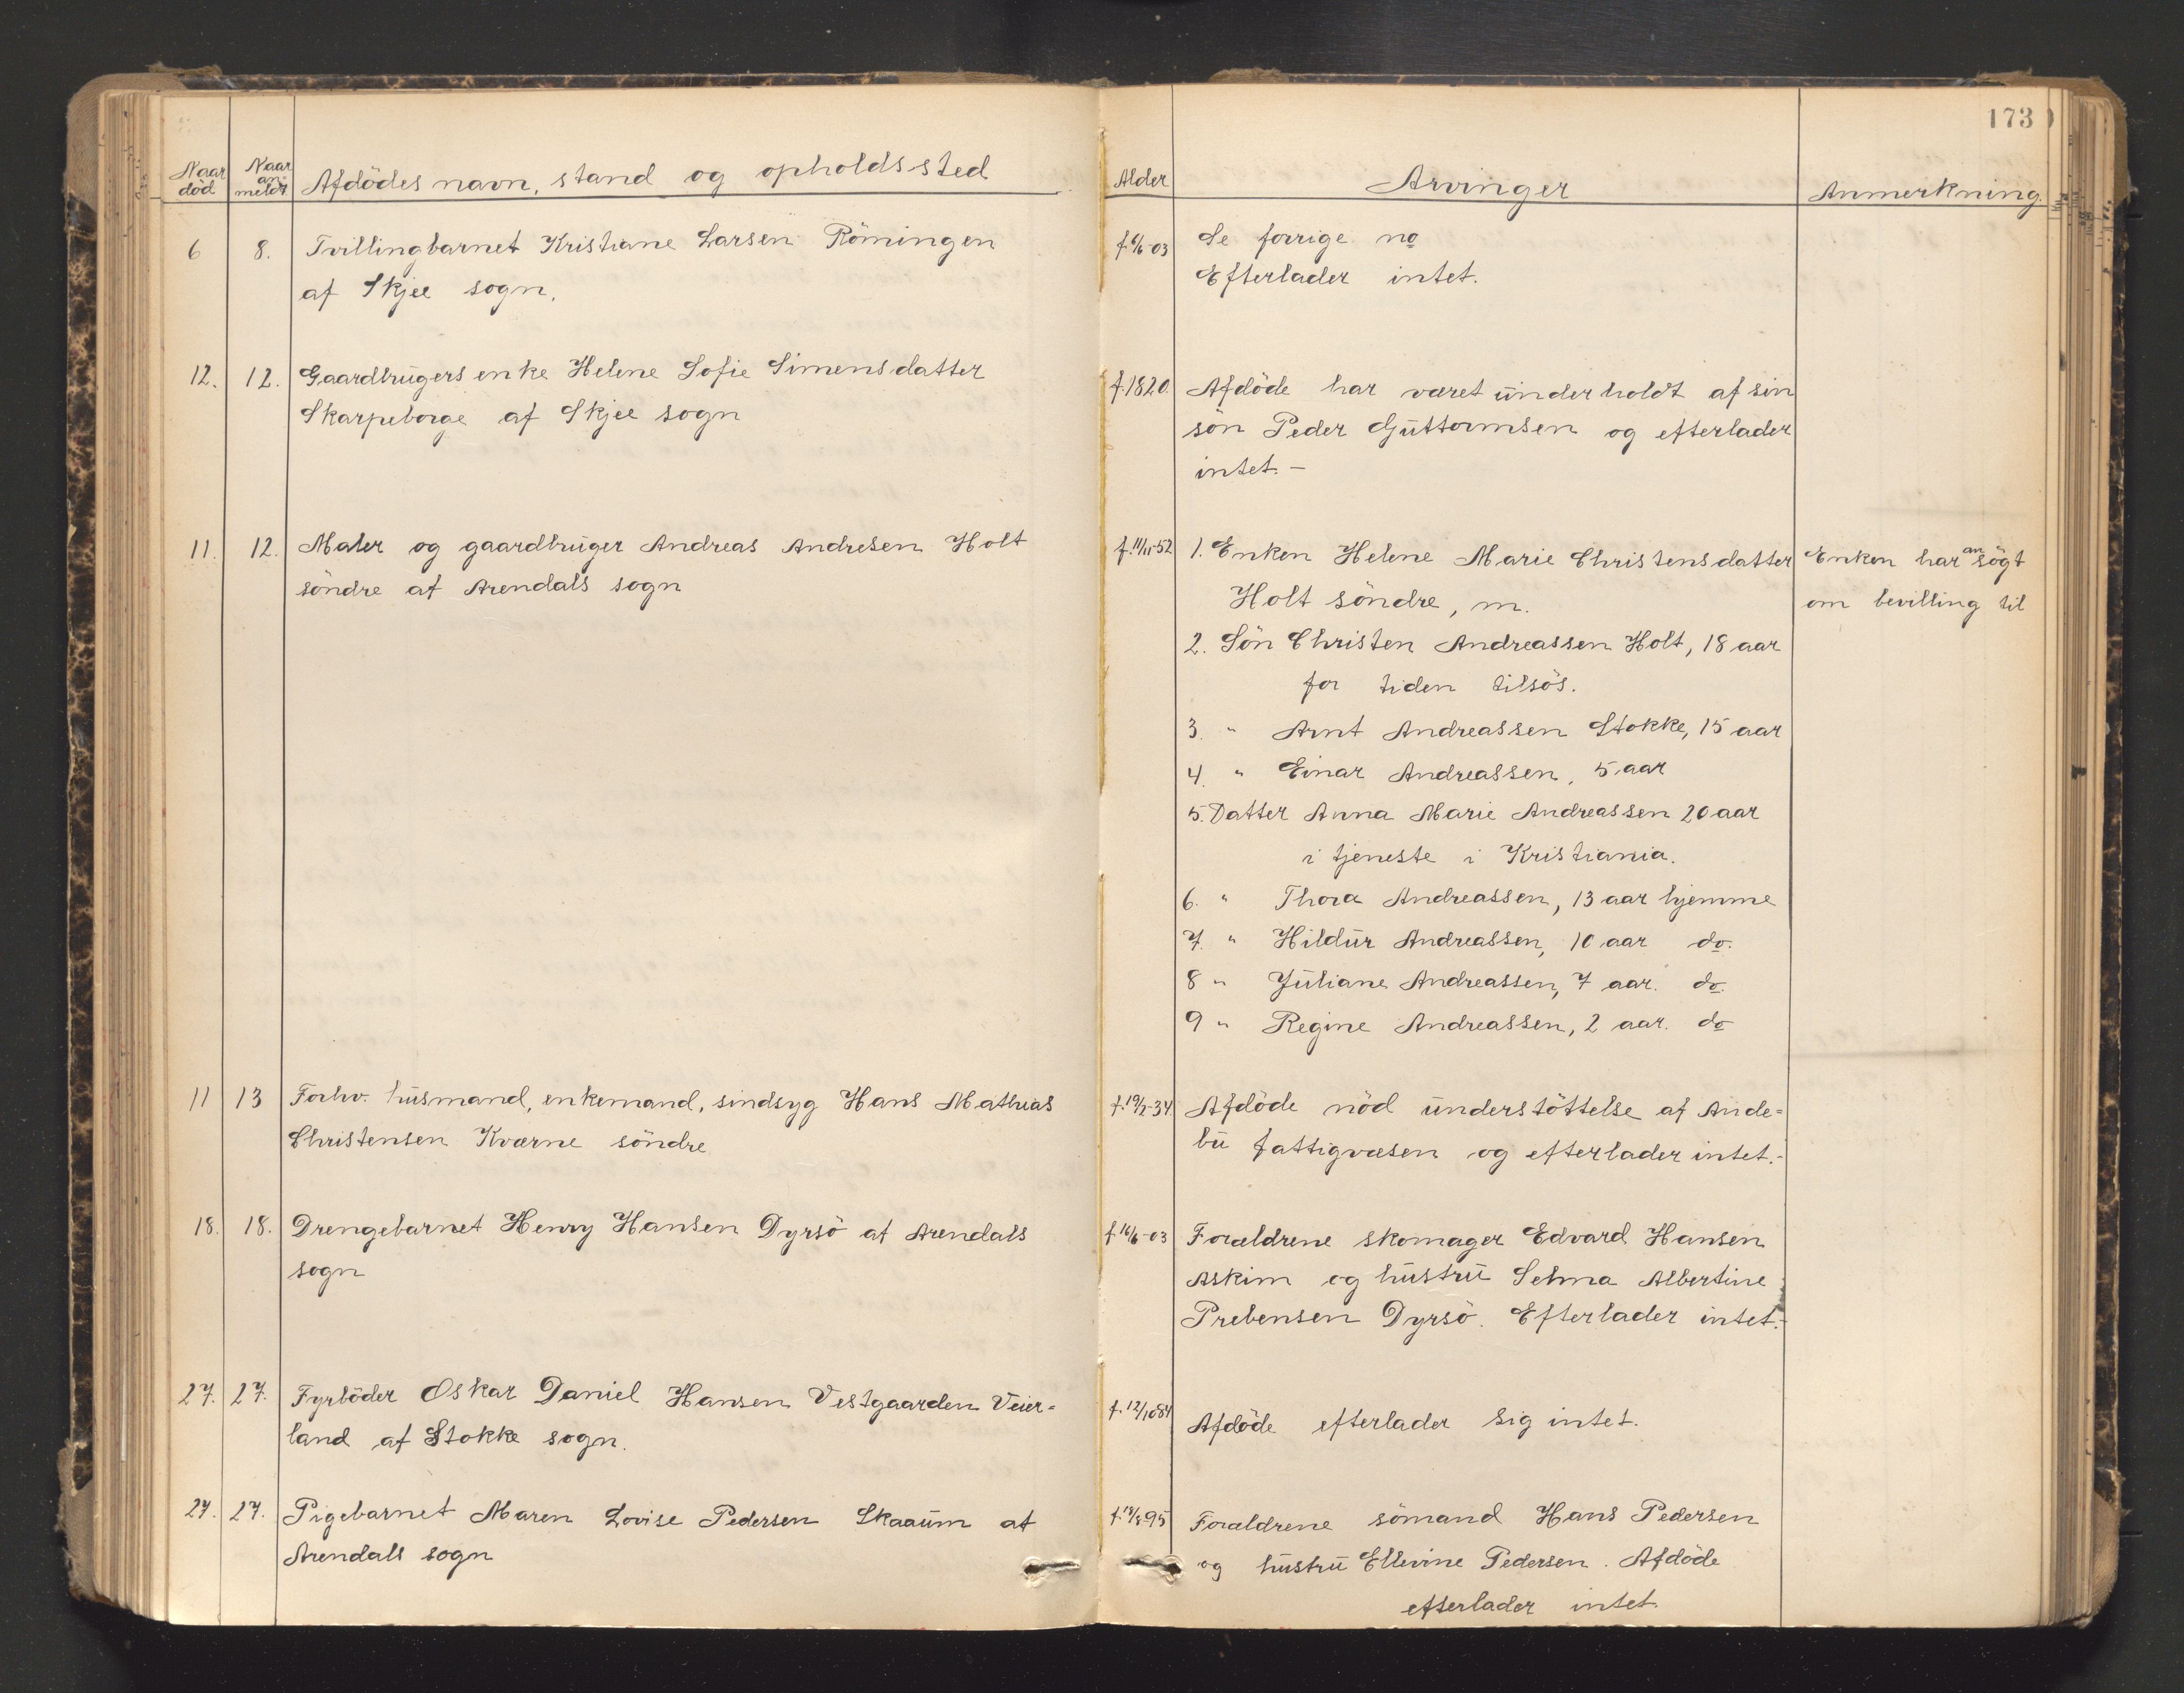 173
Naar død
Naar an-meldt
Afdödes navn, stand og opholdssted
Alder
Arvinger
Anmerkning.
6 8. Tvillingbarnet Kristiane Larsen Römingen
af Skjee sogn.
f. 6/6-03 Se forrige no
Efterlader intet.
12. 12. Gaardbrugers enke Helene Sofie Simensdatter
Skarpeborge af Skjee sogn
f. 1820. Afdöde har været underholdt af sin
sön Peder Guttormsen og efterlader
intet.-
11. 12. Maler og gaardbruger Andreas Andresen Holt
söndre af Arendals sogn
f. 11/11-52 1. Enken Helene Marie Christensdatter
Holt söndre, m.
2. Sön Christen Andreassen Holt, 18 aar
for tiden tilsös.
3. " Arnt Andreassen Stokke, 15 aar
4. " Einar Andreassen, 5 aar
5. Datter Anna Marie Andreassen 20 aar
i tjeneste i Kristiania.
6. " Thora Andreassen, 13 aar hjemme
7. " Hildur Andreassen, 10 aar do.
8 " Juliane Andreassen, 7 aar. do.
9 " Regine Andreassen, 2 aar. do
Enken har ansögt
om bevilling til
11 13 Forhv. husmand, enkemand, sindsyg Hans Mathias
Christensen Kværne söndre
f. 19/2-34 Afdöde nöd understöttelse af Ande=
bu fattigvæsen og efterlader intet.-
18. 18. Drengebarnet Henry Hansen Dyrsö af Arendals
sogn
f. 16/6-03 Forældrene skomager Edvard Hansen
Askim og hustru Selma Albertine
Prebensen Dyrsö. Efterlader intet.-
27. 27. Fyrböder Oskar Daniel Hansen Vestgaarden Veier=
land af Stokke sogn.
f. 12/10 84 Afdöde efterlader sig intet.
27. 27. Pigebarnet Maren Lovise Pedersen Skaaum af
Arendals sogn
Forældrene sömand Hans Pedersen
og hustru Ellevine Pedersen. Afdöde
efterlader intet.